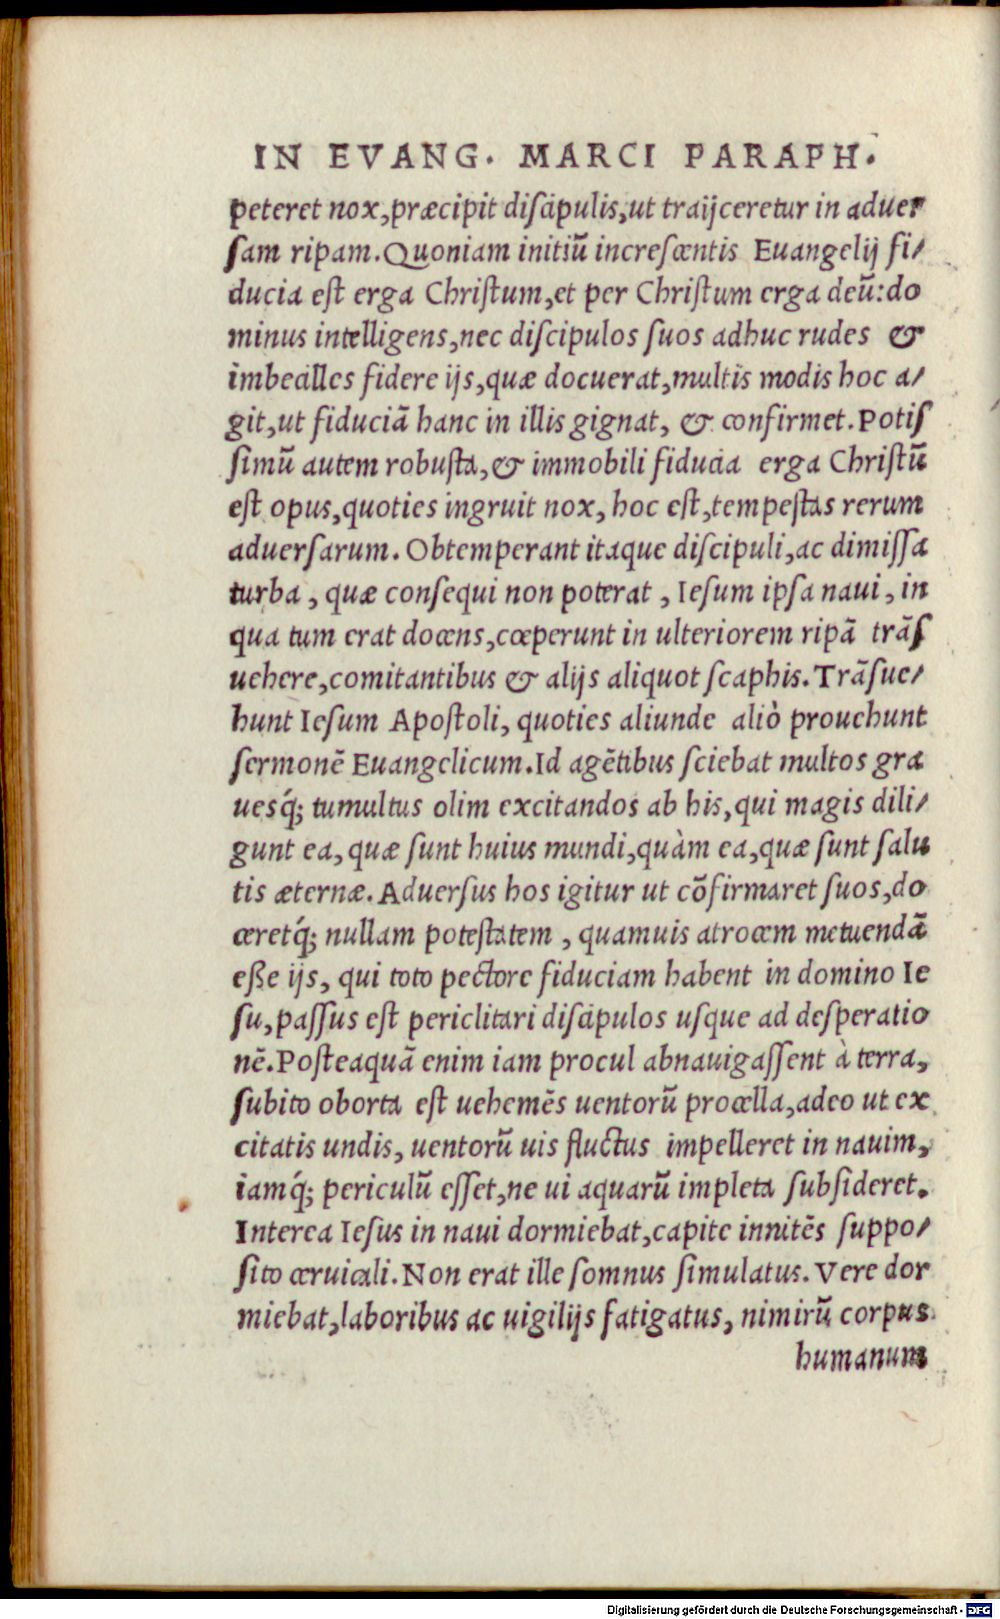 IN EVANG. MARCI PARAPH.
peteret nox,præcipit discipulis,ut traijceretur in aduer
sam ripam.Quoniam initiũ increscentis Euangelij fi/
ducia est erga Christum,et per Christum erga deũ:do
minus intelligens,nec discipulos suos adhuc rudes &
imbecilles fidere ijs,quæ docuerat,multis modis hoc a/
git,ut fiduciã hanc in illis gignat, & confirmet.Potiſ
simũ autem robusta,& immobili fiducia erga Christũ
est opus,quoties ingruit nox, hoc est,tempestas rerum
aduersarum. Obtemperant itaque discipuli,ac dimissa
turba , quæ consequi non poterat , Iesum ipsa naui, in
qua tum erat docens,cœperunt in ulteriorem ripã trãſ
uehere,comitantibus & alijs aliquot scaphis.Trãsue/
hunt Iesum Apostoli, quoties aliunde aliò prouehunt
sermonẽ Euangelicum.Id agẽtibus sciebat multos gra
uesq́; tumultus olim excitandos ab his,qui magis dili/
gunt ea, quæ sunt huius mundi,quàm ea,quæ sunt salu
tis æternæ.Aduersus hos igitur ut cõfirmaret suos,do
ceretq́; nullam potestatem , quamuis atrocem metuendã
eße ijs, qui toto pectore fiduciam habent in domino Ie
su,passus est periclitari discipulos usque ad desperatio
nẽ.Posteaquã enim iam procul abnauigassent à terra,
subito oborta est uehemẽs uentorũ procella,adeo ut ex
citatis undis, uentorũ uis fluctus impelleret in nauim,
iamq́; periculũ esset,ne ui aquarũ impleta subsideret.
Interea Iesus in naui dormiebat,capite innitẽs suppo/
sito ceruicali.Non erat ille somnus simulatus.Vere dor
miebat,laboribus ac uigilijs fatigatus, nimirũ corpus
humanum
Digitalisierung gefördert durch die Deutsche Forschungsgemeinschaft - DFG